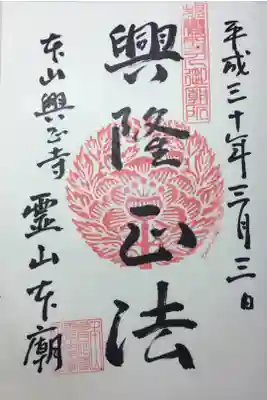 平成三十年三月三日
興隆正法
本山興正寺 霊山本廟